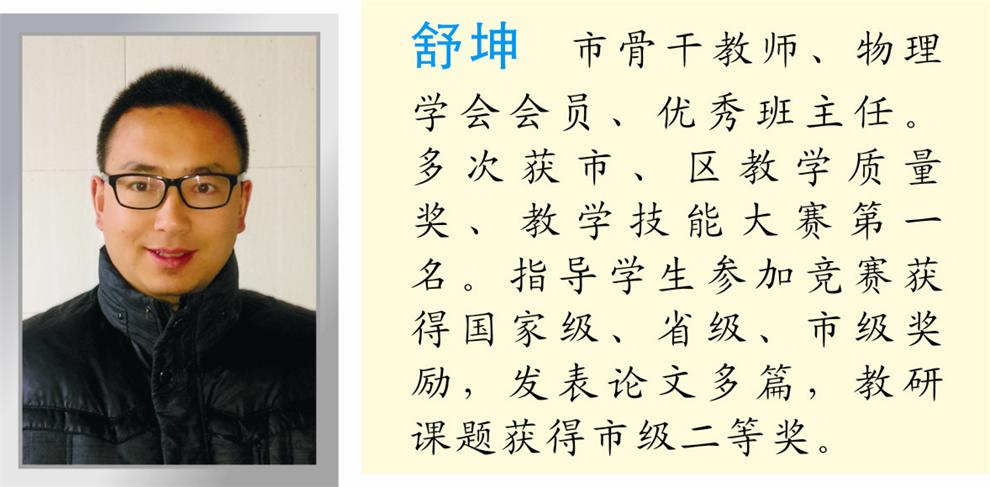 舒坤 市骨干教师、物理
学会会员、优秀班主任。
多次获市、区教学质量
奖、教学技能大赛第一
名。指导学生参加竞赛获
得国家级、省级、市级奖
励，发表论文多篇，教研
课题获得市级二等奖。